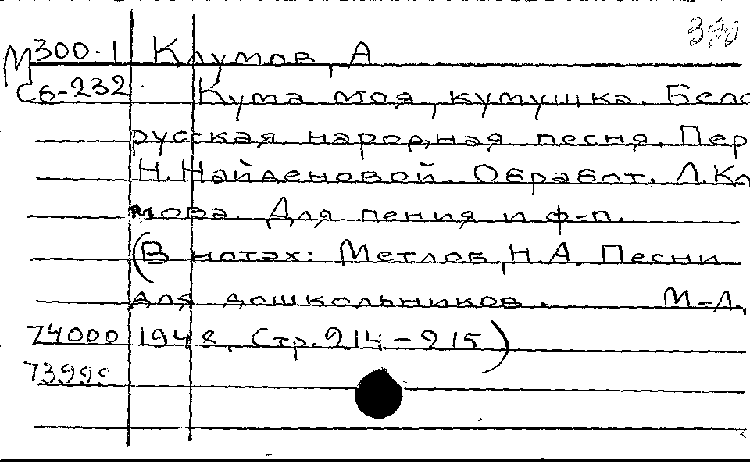 370
М300-1 Клумов, А
Сб-232 Кума моя, кумушка. Бело
русская народная песня. Пер
Н. Найденовой Обработ. Л. Кл
мова. Для пения и ф-п.
(В нотах: Метлов, Н.А. Песни
для дошкольников. М-Л.
74000 1948, Стр. 214-215)
73999